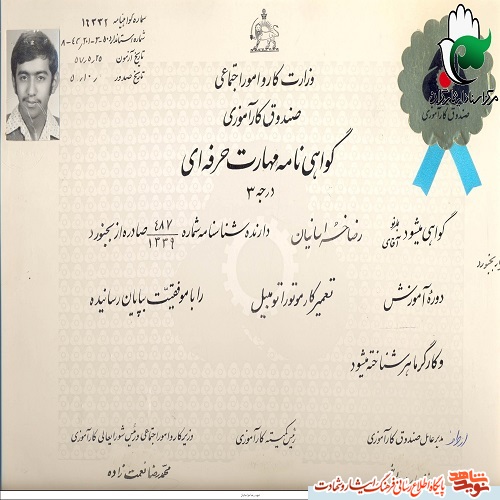 شماره گواهینامه ۱۶۳۳۲
شماره استاندارد ۸-۴۳،۲۰۱-۳-۵۰
تاریخ آزمون ۵۷،۵،۲۵
تاریخ صدور
وزارت کار و امور اجتماعی
صندوق کارآموزی
گواهی نامه مهارت حرفه ای
درجه ۳
صندوق کارآموزی
گواهی میشود بانو آقای رضا خراسانیان دارنده شناسنامه شماره ۴۸۷/۱۳۳۹ صادره از بجنورد
دوره آموزش تعمیرکار موتور اتومبیل را با موفقیت بپایان رسانیده
و کارگر ماهر شناخته میشود
مدیر عامل صندوق کارآموزی
رئیس کمیته کارآموزی
وزیر کار و امور اجتماعی و رئیس شورایعالی کارآموزی
محمد رضا نعمت زاده
نوید شاهد
پایگاه اطلاع رسانی فرهنگ ایثار و شهادت